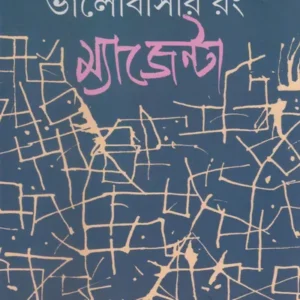 ভালোবাসার রং
ম্যাজেন্টা